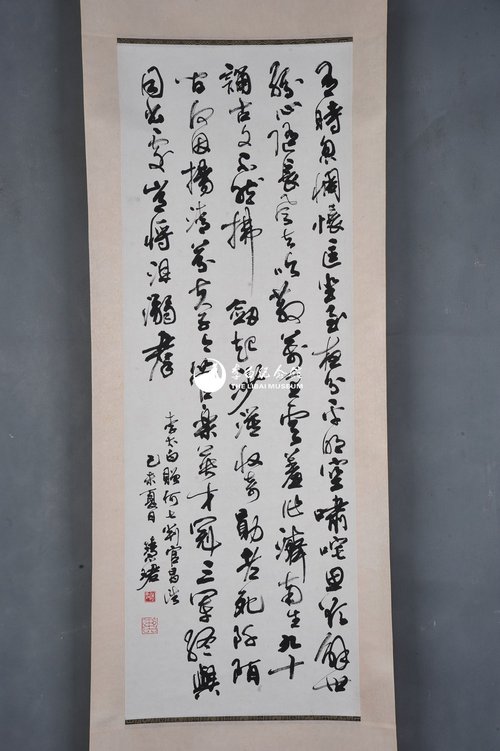 有時忽惆懷匡坐至夜分平明空嘯咤思欲解世
紛心隨長風去吹散萬里雲羞作濟南生九十
誦古文不然拂劍起沙漠收奇勛老死阡陌
間何因揚清芬夫子今管樂英才冠三軍終與
同出處豈將沮溺群
李太白贈何七判官昌浩
己未夏日
李白纪念馆
THE LIBAI MUSEUM